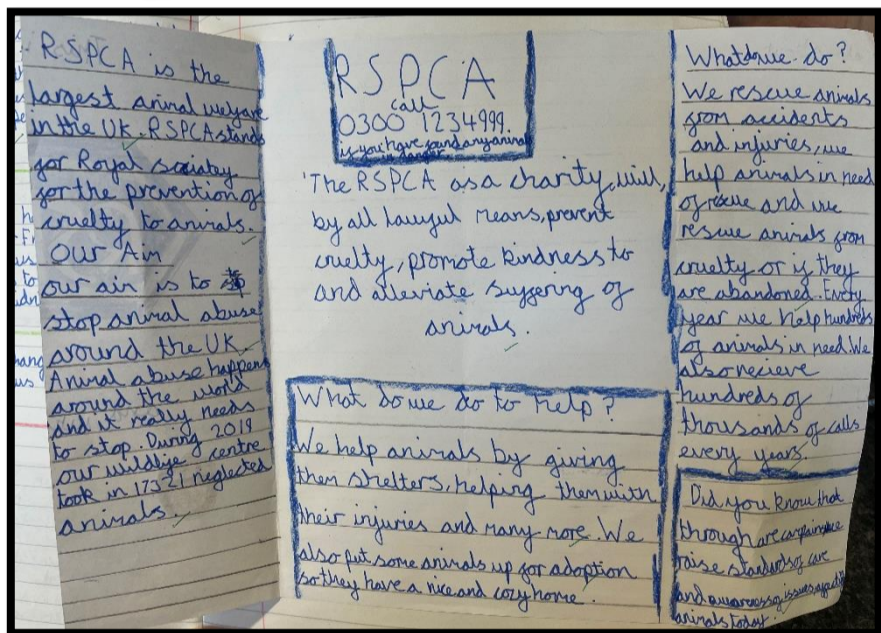 RSPCA is the
largest animal welfare
in the UK. RSPCA stands
for Royal sociatey
for the prevention of
cruelty to animals.
Our Aim
our aim is to
stop animal abuse
around the UK.
Animal abuse happens
around the world
and it really needs
to stop. During 2019
our wildlife centre
took in 17321 neglected
animals.
RSPCA
call
0300 1234999.
if you have found any animal
in danger
'The RSPCA as a charity, will,
by all lawful means, prevent
cruelty, promote kindness to
and alleviate suffering of
animals.
What do we do to help?
We help animals by giving
them shelters, helping them with
their injuries and many more. We
also put some animals up for adoption
so they have a nice and cozy home.
What do we do?
We rescue animals
from accidents
and injuries, we
help animals in need
of rescue and we
rescue animals from
cruelty or if they
are abandoned. Every
year we help hundreds
of animals in need. We
also recieve
hundreds of
thousands of calls
every years.
Did you know that
through are we
raise standards of care
and awareness of issues
animals today.